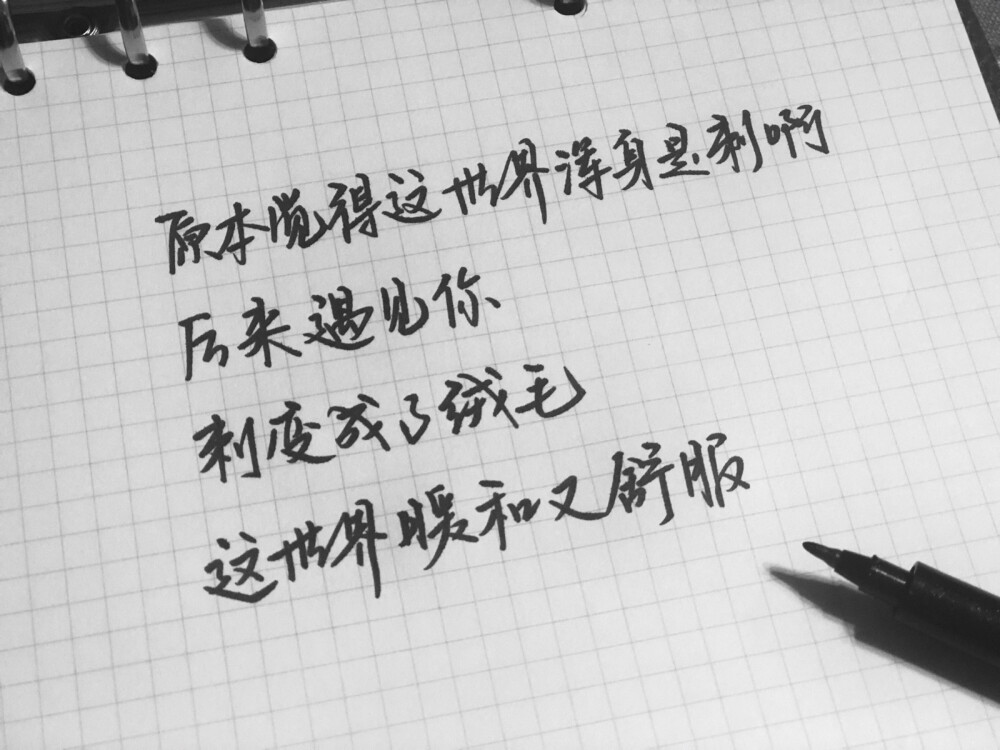 原本觉得这世界浑身是刺啊
后来遇见你
刺变成了绒毛
这世界暖和又舒服